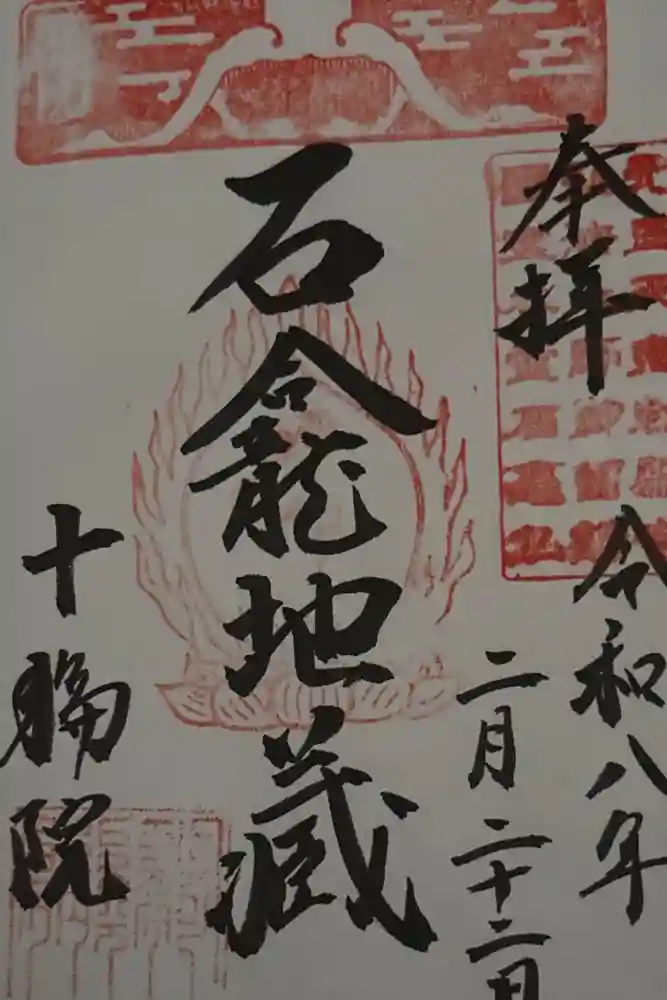 奉拝
令和八年
二月二十二日
石龕地藏
十輪院